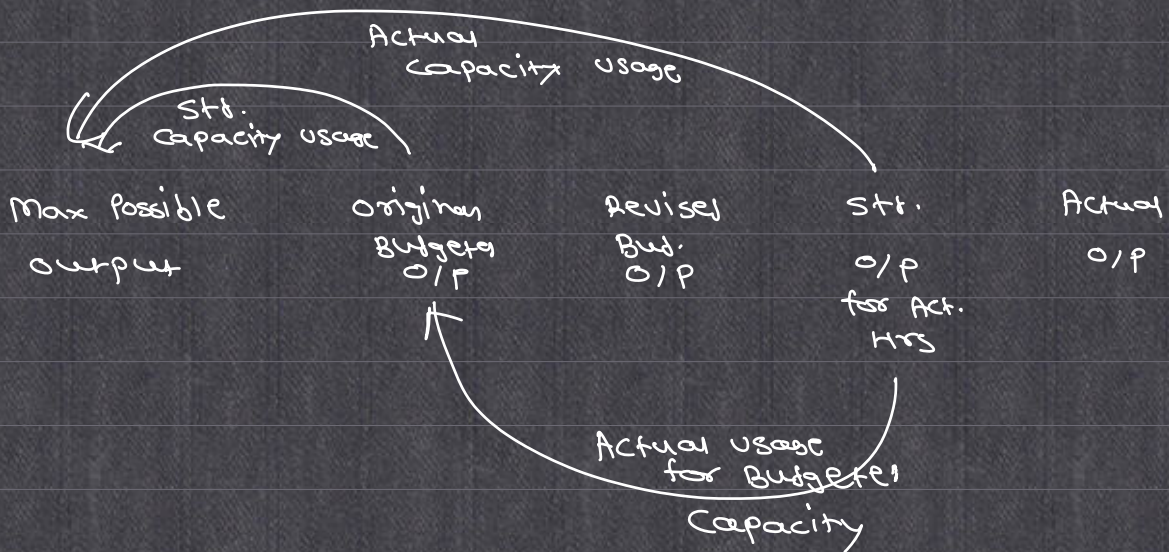 Actual
Capacity usage
Std.
Capacity usage
Max Possible
output
Original
Budgeted
O/P
Revised
Bud.
O/P
Std.
O/P
for Act.
Hrs
Actual
O/P
Actual usage
for Budgeted
Capacity